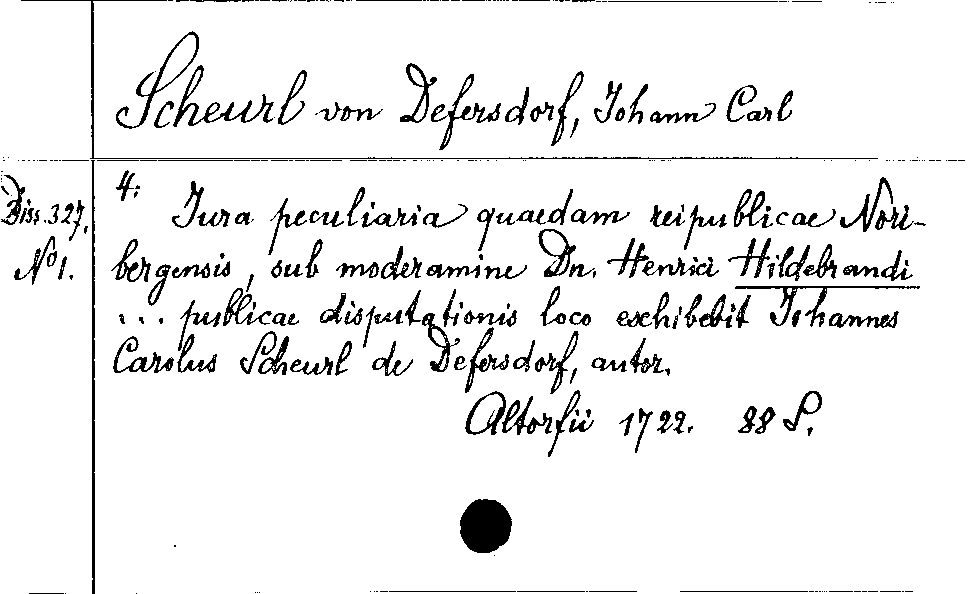 Scheurl von Defersdorf, Johann Carl
Diss. 327,
No 1.
4:
Jura peculiaria quaedam reipublicae Nori-
bergensis, sub moderamine Dn. Henrici Hildebrandi
... publicae disputationis loco exhibebit Johannes
Carolus Scheurl de Defersdorf, autor.
Altorfii 1722. 88 S.